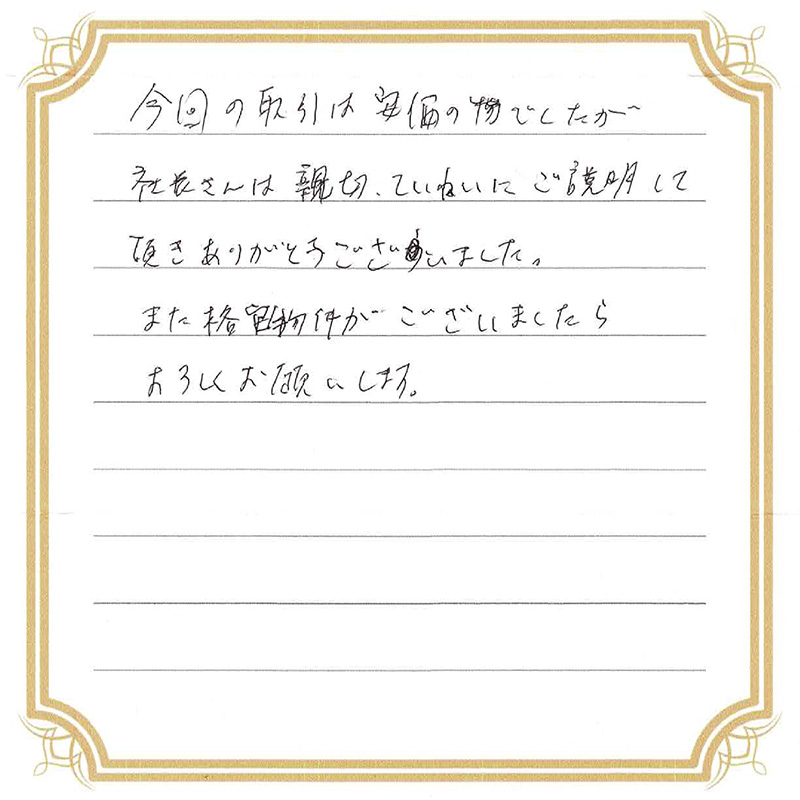 今回の取引は安価の物でしたが
社長さんは親切、ていねいにご説明して
頂きありがとうございました。
また格安物件がございましたら
よろしくお願いします。